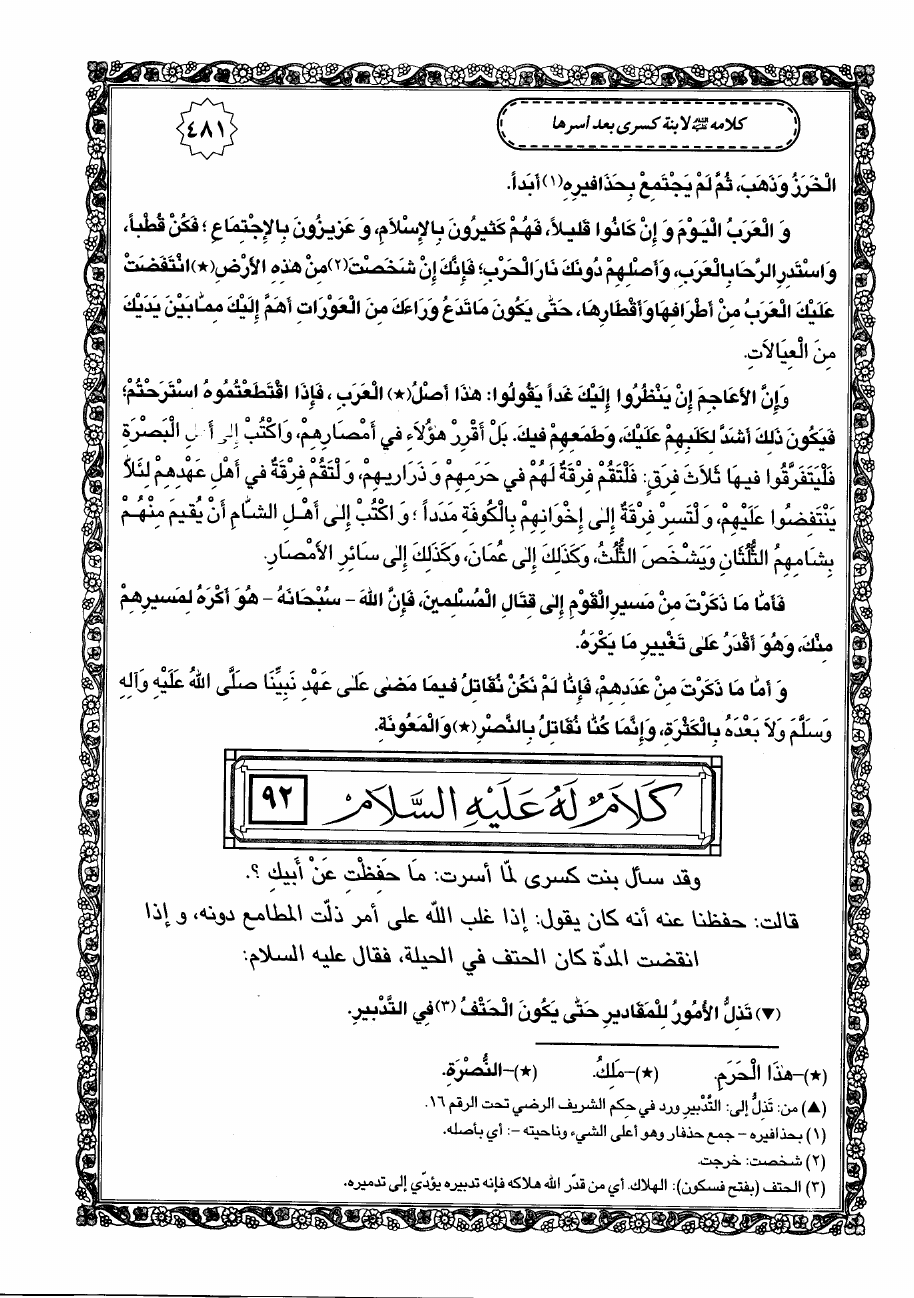 كلامه عليه السلام لابنة كسرى بعد أسرها
٤٨١
الْخَرَزُ وَذَهَبَ، ثُمَّ لَمْ يَجْتَمِعْ بِحَذَافِيرِهِ(١) أَبَداً.
وَ الْعَرَبُ الْيَوْمَ وَ إِنْ كَانُوا قَلِيلاً، فَهُمْ كَثِيرُونَ بِالإِسْلاَمِ، وَ عَزِيزُونَ بِالإِجْتِمَاعِ ؛ فَكُنْ قُطْباً،
وَاسْتَدِرِ الرَّحَا بِالْعَرَبِ، وَأَصْلِهِمْ دُونَكَ نَارَ الْحَرْبِ؛ فَإِنَّكَ إِنْ شَخَصْتَ(٢) مِنْ هذِهِ الأَرْضِ(★) انْتَقَضَتْ
عَلَيْكَ الْعَرَبُ مِنْ أَطْرَافِهَا وَأَقْطَارِهَا، حَتّى يَكُونَ مَا تَدَعُ وَرَاءَكَ مِنَ الْعَوْرَاتِ أَهَمَّ إِلَيْكَ مِمّا بَيْنَ يَدَيْكَ
مِنَ الْعِيَالاَتِ.
وَإِنَّ الأَعَاجِمَ إِنْ يَنْظُرُوا إِلَيْكَ غَداً يَقُولُوا: هذَا أَصْلُ(★) الْعَرَبِ، فَإِذَا اقْتَطَعْتُمُوهُ اسْتَرَحْتُمْ؛
فَيَكُونَ ذَلِكَ أَشَدَّ لِكَلَبِهِمْ عَلَيْكَ، وَطَمَعِهِمْ فيكَ. بَلْ أَقْرِرْ هؤُلاَءِ في أَمْصَارِهِمْ، وَاكْتُبْ إِلى أَهْلِ الْبَصْرَةِ
فَلْيَتَفَرَّقُوا فيهَا ثَلاَثَ فِرَقٍ: فَلْتَقُمْ فِرْقَةٌ لَهُمْ في حَرَمِهِمْ وَ ذَرَارِيهِمْ، وَ لْتَقُمْ فِرْقَةٌ في أَهْلِ عَهْدِهِمْ لِئَلاَّ
يَنْتَقِضُوا عَلَيْهِمْ، وَ لْتَسِرْ فِرْقَةٌ إِلى إِخْوَانِهِمْ بِالْكُوفَةِ مَدَداً ؛ وَ اكْتُبْ إِلى أَهْلِ الشّامِ أَنْ يُقيمَ مِنْهُمْ
بِشَامِهِمُ الثُّلُثَانِ وَيَشْخَصَ الثُّلُثُ، وَكَذَلِكَ إِلى عُمَانَ، وَكَذَلِكَ إِلى سَائِرِ الأَمْصَارِ.
فَأَمّا مَا ذَكَرْتَ مِنْ مَسيرِ الْقَوْمِ إِلى قِتَالِ الْمُسْلِمينَ، فَإِنَّ اللهَ - سُبْحَانَهُ - هُوَ أَكْرَهُ لِمَسيرِهِمْ
مِنْكَ، وَهُوَ أَقْدَرُ عَلى تَغْييرِ مَا يَكْرَهُ.
وَ أَمّا مَا ذَكَرْتَ مِنْ عَدَدِهِمْ، فَإِنّا لَمْ نَكُنْ نُقَاتِلُ فيمَا مَضى عَلى عَهْدِ نَبِيِّنَا صَلَّى اللهُ عَلَيْهِ وَآلِهِ
وَسَلَّمَ وَلاَ بَعْدَهُ بِالْكَثْرَةِ، وَإِنَّمَا كُنّا نُقَاتِلُ بِالنَّصْرِ(★) وَالْمَعُونَةِ.
كَلَامٌ لَهُ عَلَيْهِ السَّلَامُ ٩٢
وقد سأل بنت كسرى لمّا أسرت: مَا حَفِظْتِ عَنْ أَبيكِ ؟.
قالت: حفظنا عنه أنه كان يقول: إذا غلب اللّه على أمر ذلّت المطامع دونه، و إذا
انقضت المدّة كان الحتف في الحيلة، فقال عليه السلام:
(▼) تَذِلُّ الأُمُورُ لِلْمَقَاديرِ حَتّى يَكُونَ الْحَتْفُ(٣) فِي التَّدْبيرِ.
(★)-هذَا الْحَرَمِ. (★)-مَلِكُ. (★)-النُّصْرَةِ.
(▲) من: تَذِلُّ إلى: التَّدْبيرِ ورد في حِكم الشريف الرضي تحت الرقم ١٦.
(١) بحذافيره - جمع حذفار وهو أعلى الشيء وناحيته -: أي بأصله.
(٢) شخصت: خرجت.
(٣) الحتف (بفتح فسكون): الهلاك. أي من قدّر الله هلاكه فإنه تدبيره يؤدّي إلى تدميره.